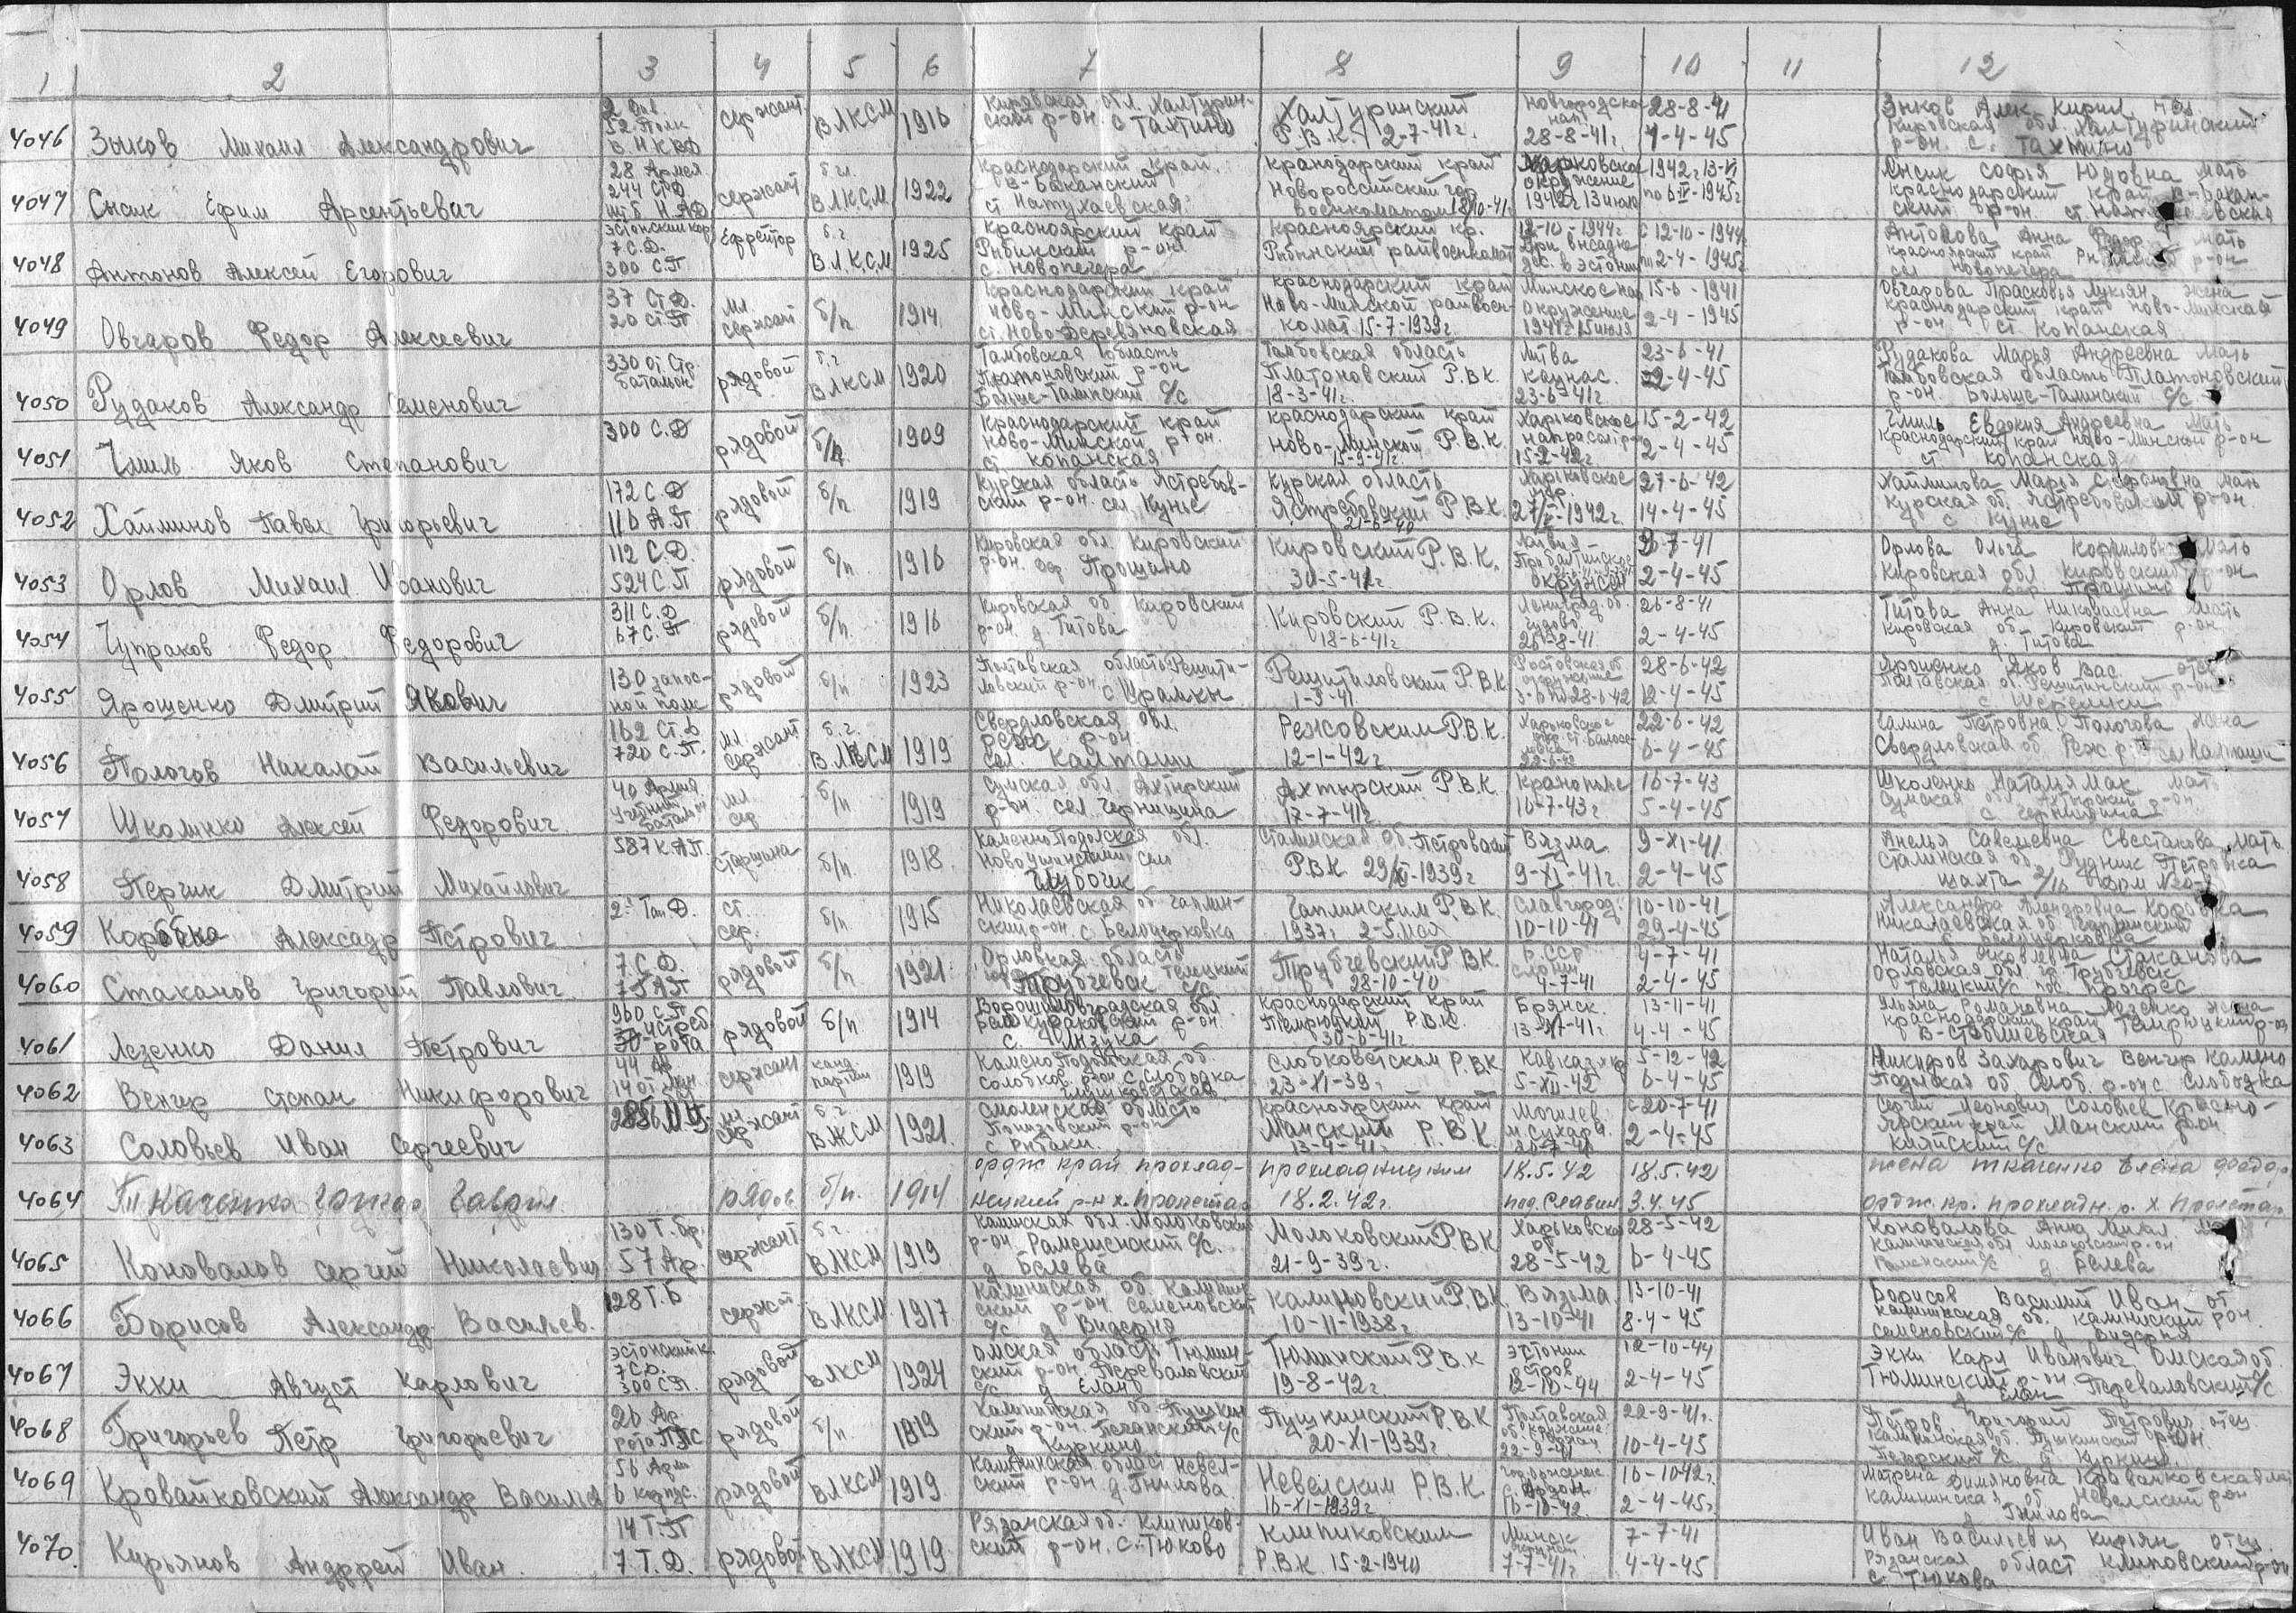 1 2 3 4 5 6 7 8 9 10 11 12
4046 Зыков Михаил Александрович 52 Полк НКВД сержант ВЛКСМ 1916 Кировская обл. Халтурин- ский р-он. с Тахтино Халтуринский Р.В.К. 2-7-41г. 28-8-41г. 28-8-41 4-4-45 Зыков Алек. Кирил. отец Кировская обл. Халтуринский р-он. с. Тахтино
4047 Снсик Ефим Арсентьевич 28 Армия 244 Ст.Д сержант б.г. ВЛКСМ 1922 Краснодарский край. В-Баканский ст Натухаевская Краснодарский край Новороссийский гор военкоматом 18-10-41 окружение 1942г 13 июля 1942г 13-VI по 6-IV-1945г Софья Юдовна мать Краснодарский край в-Бакан- ский р-он ст
4048 Антонов Алексей Егорович Эстонский кор 7 С.Д. 300 С.П Ефрейтор б.г. В.Л.К.С.М 1925 Красноярский край Рыбинский р-он с. Новопечера Красноярский кр. Рыбинский райвоенкомат 12-10-1944г При высадке дес. в Эстонии с 12-10-1944 по 2-4-1945г Антонова Анна Федор. мать Красноярский край р-он сел Новопечера
4049 Овчаров Федор Алексеевич 37 Ст.Д. 20 Ст.П мл. сержант б/п 1914 Краснодарский край Ново-Минский р-он ст. Ново-Деревяновская Краснодарский край Ново-Минской райвоен- комат 15-7-1939г. Минское нап окружение 1941г 15 июля 15-6-1941 2-4-1945 Овчарова Прасковья Лукьян. жена Краснодарский край Ново-Минская р-он ст Копанская
4050 Рудаков Александр Семенович 330 от Стр. батальон рядовой б.г ВЛКСМ 1920 Тамбовская область Платоновский р-он Больше-Талинский с/с Тамбовская область Платоновский Р.В.К. 18-3-41г. Литва Каунас. 23-6-41г 23-6-41 2-4-45 Рудакова Марья Андреевна мать Тамбовская область Платоновский р-он. Больше-Талинский с/с
4051 Чмиль Яков Степанович 300 С.Д рядовой б/п 1909 Краснодарский край Ново-Минской р-он. ст. Копанская Краснодарский край Ново-Минской Р.В.К. 15-9-41г. Харьковское 15-2-42г 15-2-42 2-4-45 Чмиль Евдокия Андреевна мать Краснодарский край Ново-Минской р-он ст Копанская
4052 Хайминов Павел Григорьевич 172 С.Д 116 А.П рядовой б/п 1919 Курская область Ястребов- ский р-он. сел Кунье Курская область Ястребовский Р.В.К. 21-6-40 Харьковское нар. 1942г. 27-6-42 14-4-45 Хайминова Марья мать Курская об. Ястребовской р-он. с Кунье
4053 Орлов Михаил Иванович 112 С.Д. 524 С.П рядовой б/п 1916 Кировская обл. Кировский р-он. дер Прошино Кировский Р.В.К. 30-5-41г. Прибалтийское окружен 2-4-45 Орлова Ольга мать Кировская обл Кировский р-он дер. Прошино
4054 Чупраков Федор Федорович 311 С.Д 67 С.П рядовой б/п. 1916 Кировская об. Кировский р-он д Титова Кировский Р.В.К. 18-6-41г Ленинград. об. Чудово 26-8-41. 26-8-41 2-4-45 Титова Анна Николаевна мать Кировская об. Кировский р-он д. Титова
4055 Ярошенко Дмитрий Якович 130 запос- ной полк рядовой б/п 1923 Полтавская область Решити- ловский р-он с Шрамки Решитиловский Р.В.К 1-9-41 Ростовская об окружение 28-6-42 28-6-42 12-4-45 Ярошенко Яков Вас отец Полтавская об. р-он
4056 Пологов Николай Васильевич 162 Ст.Д 720 С.П. мл. сержант б.г. ВЛКСМ 1919 Свердловская обл. Реж р-он сел. Колташи Режовским Р.В.К. 12-1-42г. Харьковское 22-6-42 22-6-42 6-4-45 Галина Петровна Пологова жена Свердловская об. Реж р. сел Колташи
4057 Школинко Алексей Федорович 40 Армия учебный батальон мл сер б/п 1919 Сумская обл. Ахтырский р-он. сел. Чернищина Ахтырский Р.В.К. 17-7-41г Кранополье 16-7-43г 16-7-43 5-4-45 Школенко Наталья Мак. мать Сумская обл Ахтырский р-он. с Чернищина
4058 Перчик Дмитрий Михайлович 587 К.А.П. старшина б/п 1918 КаменноПодолская обл. Новоушинский село Глубочек Сталинская об. Петровский Р.В.К 29/XI-1939г Вязма 9-XI-41г. 9-XI-41 2-4-45 Анелья Савельевна Свестакова мать Сталинская об. Рудник Петровка шахта 2/16 дом №20-
4059 Коробка Александр Петрович 2. Тан Д. ст. сер. б/п 1915 Николаевская об Чаплин- ский р-он. с. Белоцерковка Чаплинским Р.В.К. 1937г 2-5 мая Славгород. 10-10-41 10-10-41 29-4-45 Александра Александровна Коробка Николаевская об. Чаплинский с Белоцерковка
4060 Стаканов Григорий Павлович 7 С.Д. 7 А П рядовой б/п 1921 Орловская область Трубчевск Телецкий с/с Трубчевский Р.В.К 28-10-40 Б.ССР 4-7-41 4-7-41 2-4-45 Наталья Яковлевна Стаканова Орловская обл. гр Трубчевск Телецкий с/с пос. Прогрес
4061 Лезенко Данил Петрович 960 С.П рота рядовой б/п 1914 Ворошиловградская обл. р-он. Краснодарский край Темрюцкий Р.В.К. 30-6-41г Брянск. 13-XI-41г. 13-11-41 4-4-45 Ульяна Романовна Лезенко жена Краснодарский край Темрюцкий р-он В-Стеблиевская
4062 Венгир Степан Никифорович 44 Ар сержант канд. партии 1919 КаменоПодолская об. Солобков. р-он. с Слободка Слобковетским Р.В.К 23-XI-39г Кавказ 5-XII-42 5-12-42 6-4-45 Никифор Захарович Венгир Камено Подолская об Слоб. р-он с Слободка
4063 Соловьев Иван Сергеевич мл. сержант б.г. ВЛКСМ 1921. Смоленская область Понизовский р-он с. Рибаки. Красноярский край Манский Р.В.К 13-4-41г Могилев м. Сухари. 20-7-41 с 20-7-41 2-4-45 Сергей Леонович Соловьев Красно- ярский край Манский р-он с/с
4064 Ткаченко Гаврил рядов б/п. 1914 ордж край прохлад- ненский р-н х. Пролетар Прохладницким 18.2.42г. 18.5.42 под Славин 18.5.42 3.4.45 жена Ткаченко Елена Федор. ордж. кр. прохладн. р. х Пролетар.
4065 Коновалов Сергей Николаевич 130 Т. бр. 57 Ар. сержант б.г. ВЛКСМ 1919 Калинская обл. Молоковский р-он Рамешенский с/с. д Белева Молоковский Р.В.К 21-9-39г. Харьковская об 28-5-42 28-5-42 6-4-45 Коновалова Анна Михаил Калининская обл Молоковский р-он д Белева
4066 Борисов Александр Васильев. 128 Т.Б сержст. ВЛКСМ 1917 Калининская об. Калинин- ский р-он. Семеновский с/с д Видерня Калиновский Р.В.К. 10-11-1938г Вязьма 13-10-41 13-10-41 8-4-45 Борисов Василий Иван. от Калининская об. Калинский рон. Семеновский с/с д Видерня
4067 Экки Август Карлович Эстонский к 7 С.Д. 300 С.П. рядовой ВЛКСМ 1924 Омская область Тюмин- ский р-он. Переваловский с/с д Елань Тюминский Р.В.К 19-8-42г. Эстонии остров 12-10-44 12-10-44 2-4-45 Экки Карл Иванович Омская об. Тюминский р-он Переваловский с/с д Елан
4068 Григорьев Петр Григорьевич 26 Ар рота рядовой б/п. 1919 Калининская об. Пушкин ский р-он. с/с д Куркино Пушкинский Р.В.К 20-XI-1939г Полтавская 22-9-41 22-9-41г. 10-4-45 Петров Григорий Петрович отец Калининская об. Пушкинский р-он. с/с д Куркино.
4069 Кровайковский Александр Васильев 56 Арм 6 корпус. рядовой ВЛКСМ 1919 Калининская област Невел- ский р-он д Гнилова Невелским Р.В.К. 16-XI-1939г с. Ардон. 16-10-42. 16-1042г. 2-4-45г. Матрена Кровайковская Калининская об Невелский рон д Гнилова
4070. Курьянов Андррей Иван. 14 Т.П 7.Т.Д. рядовой ВЛКСМ 1919 Рязанская об. Клипиков- ский р-он. с. Тюково Клипиковским Р.В.К 15-2-1940 Минск 7-7-41г 7-7-41 4-4-45 Иван Васильевич Курьян отец. Рязанская област Клиповский р-он с. Тюкова